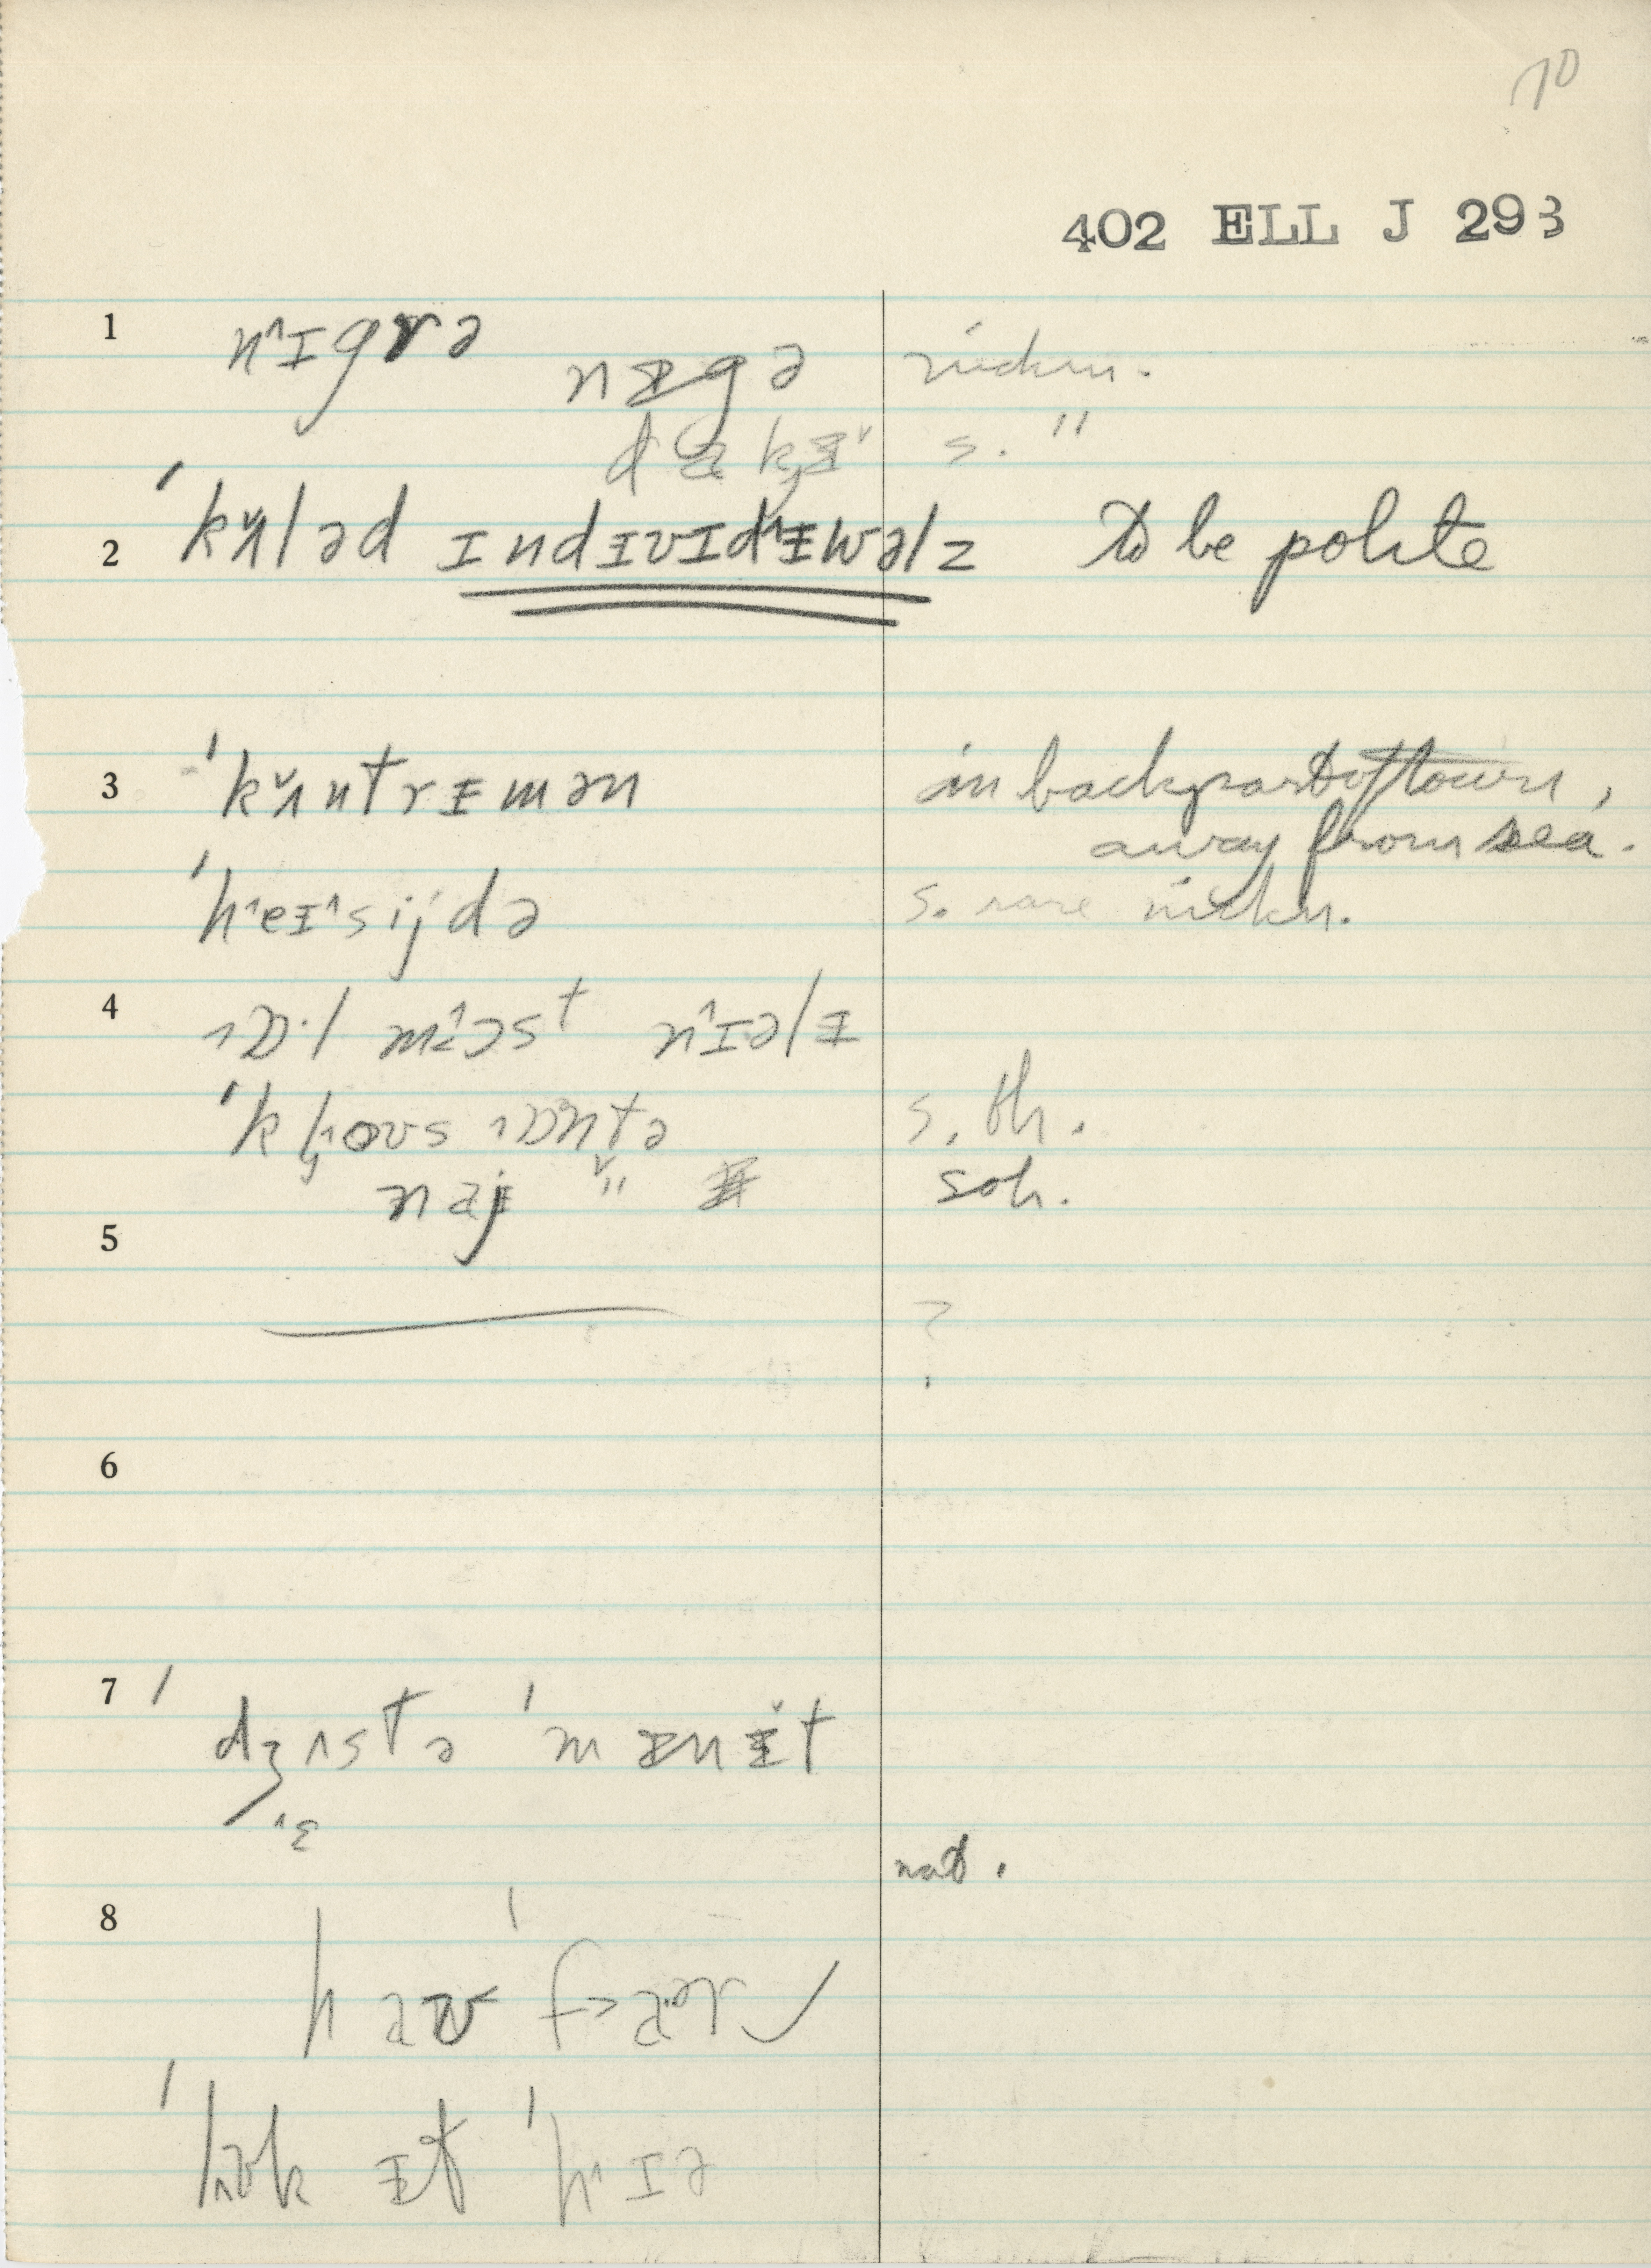 70
402 ELL J 293
1 n˄ɪgrə
nɪ̵gə nickn.
dɑkɪ̵˅ s. "
2 ˈkʌ̌ləd ɪndɪ̵vɪd˄ɪ̵wəlz to be polite
3 ˈkʌ̌ntrɪ̵mən in back part of town,
away from sea.
ˈh˄eɪ̵˄sijdə s. rare nickn.
4 ˒ɒ·l m˄ɔst n˄ɪəlɪ̵
ˈkl̥˒oʊs ˒ɒntə s. th.
naɪ̵ " soh.
5 ?
6
7 ˈdʒʌstə ˈmɪ̵nɪ̵̌t
˄ɛ
nat.
8 haʊ ˈf>a·ər
ˈlʊk ɪ̵t ˈh˄ɪə